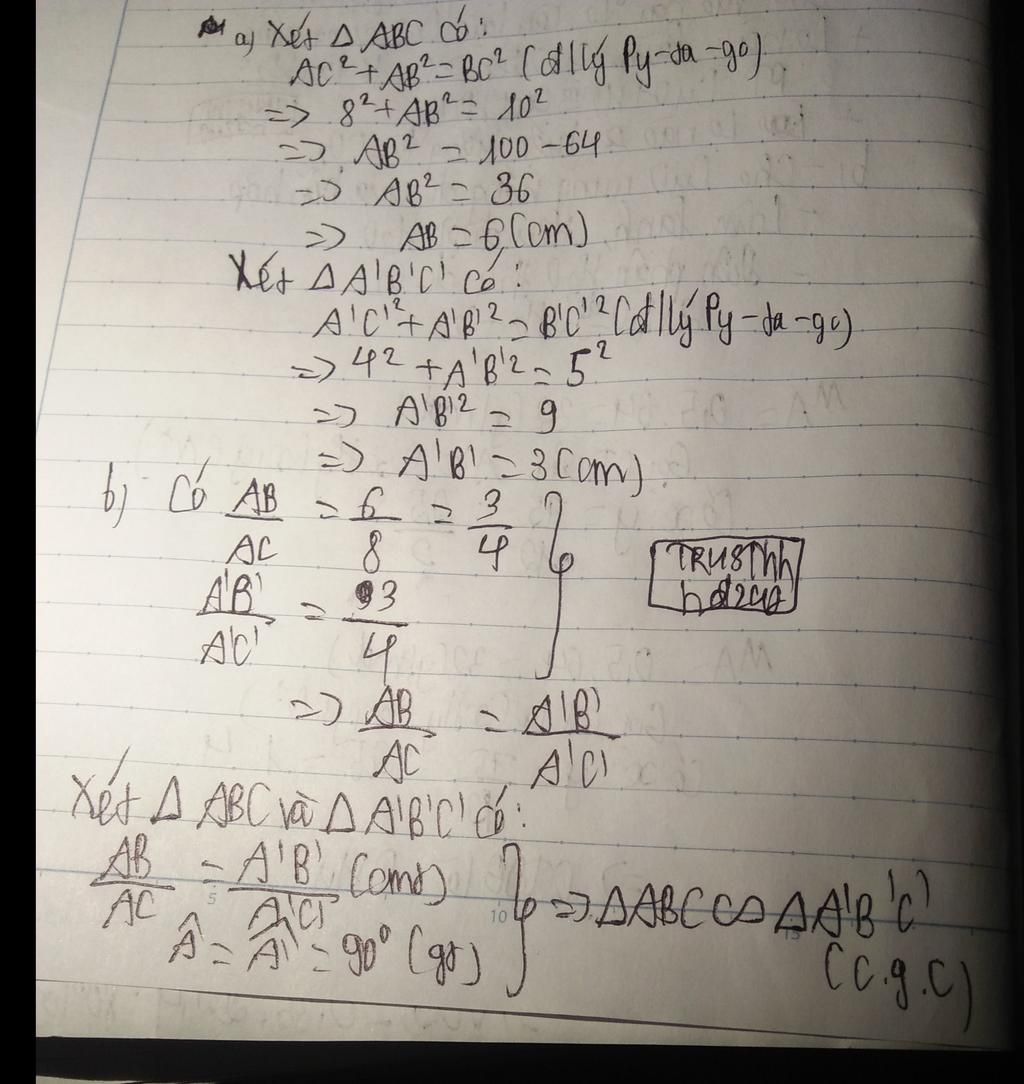 a) Xét Δ ABC có:
AC² + AB² = BC² (đ/lý Py-ta-go)
=> 8² + AB² = 10²
=> AB² = 100 - 64
=> AB² = 36
=> AB = 6 (cm)
Xét Δ A'B'C' có:
A'C'² + A'B'² = B'C'² (đ/lý Py-ta-go)
=> 4² + A'B'² = 5²
=> A'B'² = 9
=> A'B' = 3 (cm)
b) Có AB/AC = 6/8 = 3/4
A'B'/A'C' = 3/4
=> AB/AC = A'B'/A'C'
Xét Δ ABC và Δ A'B'C' có:
AB/AC = A'B'/A'C' (cmt)
Â = Â' = 90° (gt)
=> Δ ABC ∽ Δ A'B'C'
(c.g.c)